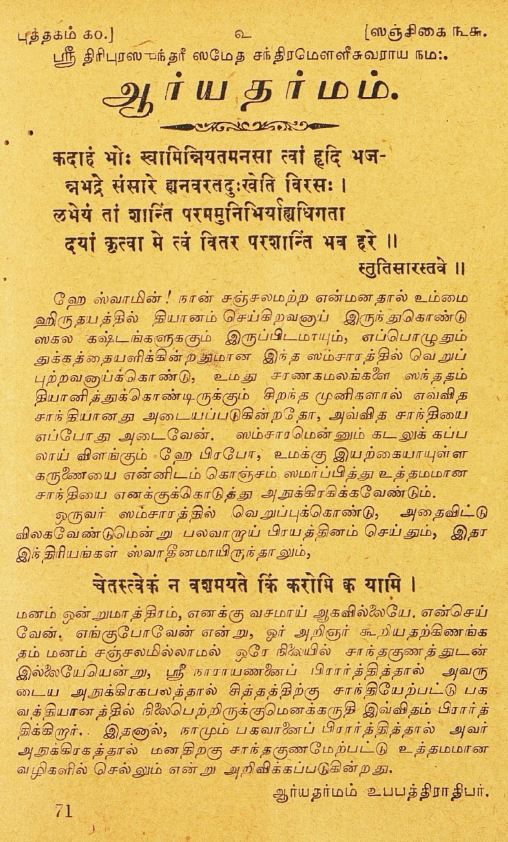 புத்தகம் ௧௦.] ௨ [ஸஞ்சிகை ௩௬.
ஸ்ரீ திரிபுரஸுந்தரீ ஸமேத சந்திரமௌளீசுவராய நம:.
ஆர்யதர்மம்.
कदाहं भोः स्वामिन्नियतमनसा त्वां हृदि भज-
न्नभद्रे संसारे ह्यनवरतदुःखेति विरसः ।
लभेयं तां शान्तिं परममुनिभिर्याह्यधिगता
दयां कृत्वा मे त्वं वितर परशान्तिं भव हरे ॥
स्तुतिसारस्तवे ॥
ஹே ஸ்வாமின்! நான் சஞ்சலமற்ற என்மனதால் உம்மை
ஹிருதயத்தில் தியானம் செய்கிறவனாய் இருந்துகொண்டு
ஸகல கஷ்டங்களுக்கும் இருப்பிடமாயும், எப்பொழுதும்
துக்கத்தையளிக்கின்றதுமான இந்த ஸம்சாரத்தில் வெறுப்
புற்றவனாய்க்கொண்டு, உமது சரணகமலங்களை ஸந்ததம்
தியானித்துக்கொண்டிருக்கும் சிறந்த முனிகளால் எவ்வித
சாந்தியானது அடையப்படுகின்றதோ, அவ்வித சாந்தியை
எப்போது அடைவேன். ஸம்சாரமென்னும் கடலுக் கப்ப
லாய் விளங்கும் ஹே பிரபோ, உமக்கு இயற்கையாயுள்ள
கருணையை என்னிடம் கொஞ்சம் ஸமர்ப்பித்து உத்தமமான
சாந்தியை எனக்குக்கொடுத்து அநுக்கிரகிக்கவேண்டும்.
ஒருவர் ஸம்சாரத்தில் வெறுப்புக்கொண்டு, அதைவிட்டு
விலகவேண்டுமென்று பலவாறாய் பிரயத்தினம் செய்தும், இதர
இந்திரியங்கள் ஸ்வாதீனமாயிருந்தாலும்,
चेतस्त्वेकं न वशमयते किं करोमि क्व यामि ।
மனம் ஒன்றுமாத்திரம், எனக்கு வசமாய் ஆகவில்லையே. என்செய்
வேன். எங்குபோவேன் என்று, ஓர் அறிஞர் கூறியதற்கிணங்க
தம் மனம் சஞ்சலமில்லாமல் ஒரே நிலையில் சாந்தகுணத்துடன்
இல்லையேயென்று, ஸ்ரீ நாராயணனைப் பிரார்த்தித்தால் அவரு
டைய அநுக்கிரகபலத்தால் சித்தத்திற்கு சாந்தியேற்பட்டு பக
வத்தியானத்தில் நிலைபெற்றிருக்குமெனக்கருதி இவ்விதம் பிரார்த்
திக்கிறார். இதனால், நாமும் பகவானைப் பிரார்த்தித்தால் அவர்
அநுக்கிரகத்தால் மனதிற்கு சாந்தகுணமேற்பட்டு உத்தமமான
வழிகளில் செல்லும் என்று அறிவிக்கப்படுகின்றது.
ஆர்யதர்மம் உபபத்திராதிபர்.
71